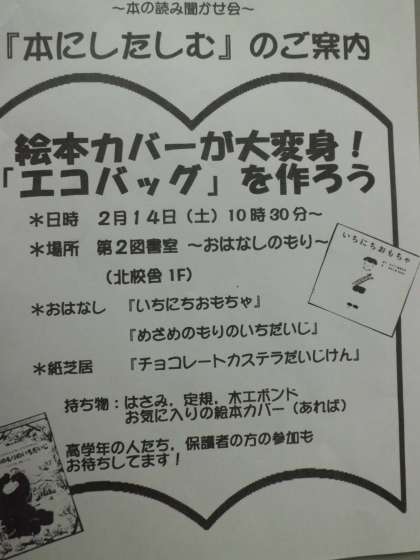 ～本の読み聞かせ会～
『本にしたしむ』のご案内
絵本カバーが大変身！
「エコバッグ」を作ろう
＊日時　２月１４日（土）１０時３０分～
＊場所　第２図書室　～おはなしのもり～
（北校舎１F）
＊おはなし　『いちにちおもちゃ』
『めざめのもりのいちだいじ』
＊紙芝居　『チョコレートカステラだいじけん』
持ち物：はさみ，定規，木工ボンド
お気に入りの絵本カバー（あれば）
高学年の人たち，保護者の方の参加も
お待ちしてます！
いちにちおもちゃ